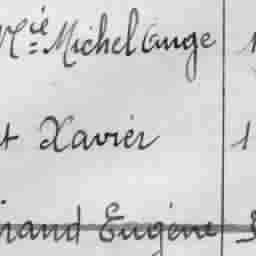 Mᶜⁱᵉ Michel Ange
t Xavier
rand Eugène